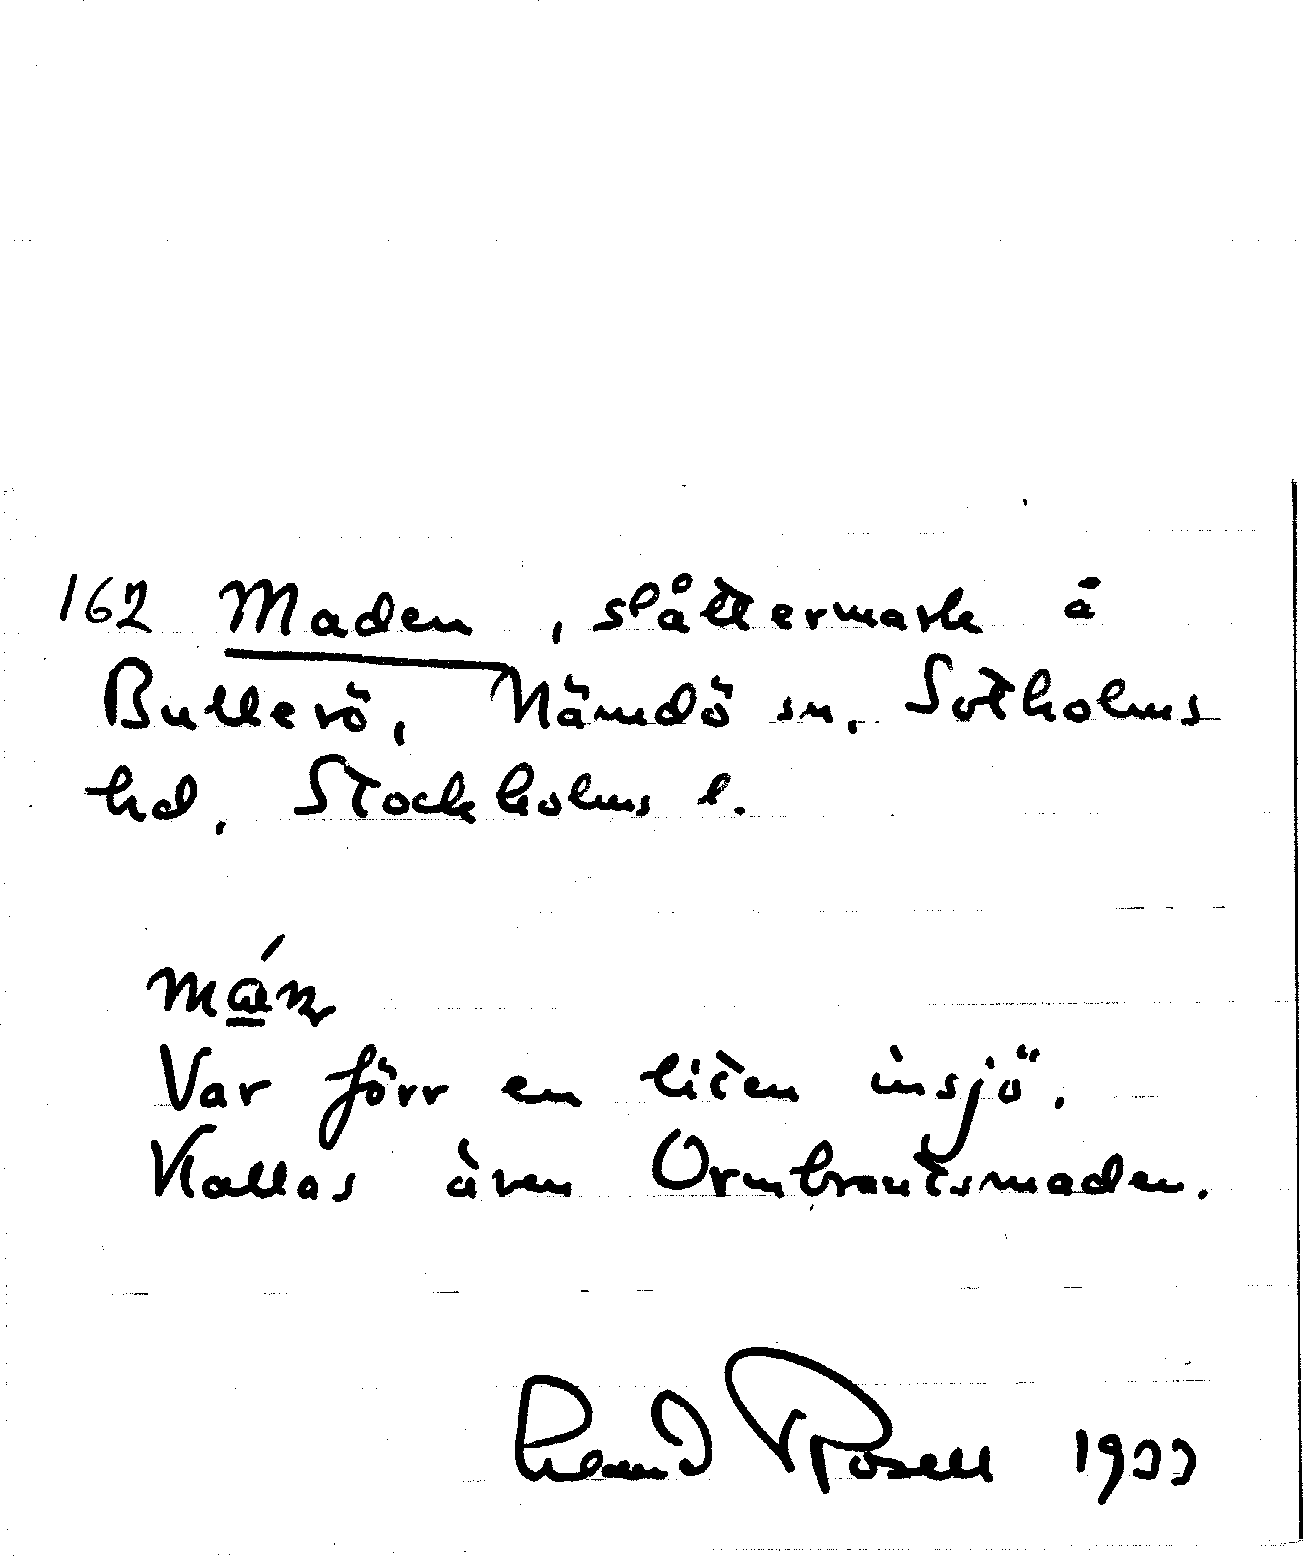 162 Maden, slåttermark å
Bullerö, Nämdö sn. Sotholms
hd, Stockholms l.
Var förr en liten insjö.
Kallas även Ormbrantsmaden.
Rosell 1933